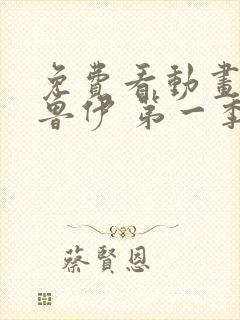 免費看動畫
魯伊 第一季
蔡賢恩